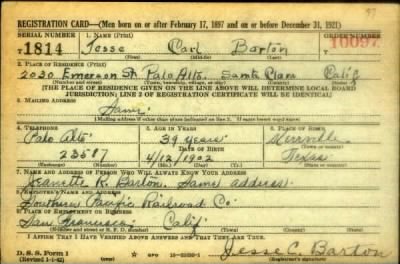 97
REGISTRATION CARD—(Men born on or after February 17, 1897 and on or before December 31, 1921)
SERIAL NUMBER 1. NAME (Print) ORDER NUMBER
1814 Jesse Carl Barton 10097
(First) (Middle) (Last)
2. PLACE OF RESIDENCE (Print)
2030 Emerson St. Palo Alto. Santa Clara Calif
(Number and street) (Town, township, village, or city) (County) (State)
[THE PLACE OF RESIDENCE GIVEN ON THE LINE ABOVE WILL DETERMINE LOCAL BOARD
JURISDICTION; LINE 2 OF REGISTRATION CERTIFICATE WILL BE IDENTICAL]
3. MAILING ADDRESS
Same
[Mailing address if other than place indicated on line 2. If same insert word same]
4. TELEPHONE 5. AGE IN YEARS 6. PLACE OF BIRTH
Palo Alto 39 years
DATE OF BIRTH
23587 4/12/1902 Texas
(Exchange) (Number) (Mo.) (Day) (Yr.) (State or country)
7. NAME AND ADDRESS OF PERSON WHO WILL ALWAYS KNOW YOUR ADDRESS
Jeanette R. Barton. Same address.
8. EMPLOYER'S NAME AND ADDRESS
Southern Pacific Railroad Co
9. PLACE OF EMPLOYMENT OR BUSINESS
San Francisco, Calif.
(Number and street or R. F. D. number) (Town) (County) (State)
I AFFIRM THAT I HAVE VERIFIED ABOVE ANSWERS AND THAT THEY ARE TRUE.
D. S. S. Form 1
(Revised 1-1-42) GPO Jesse C. Barton
(Registrant's signature)